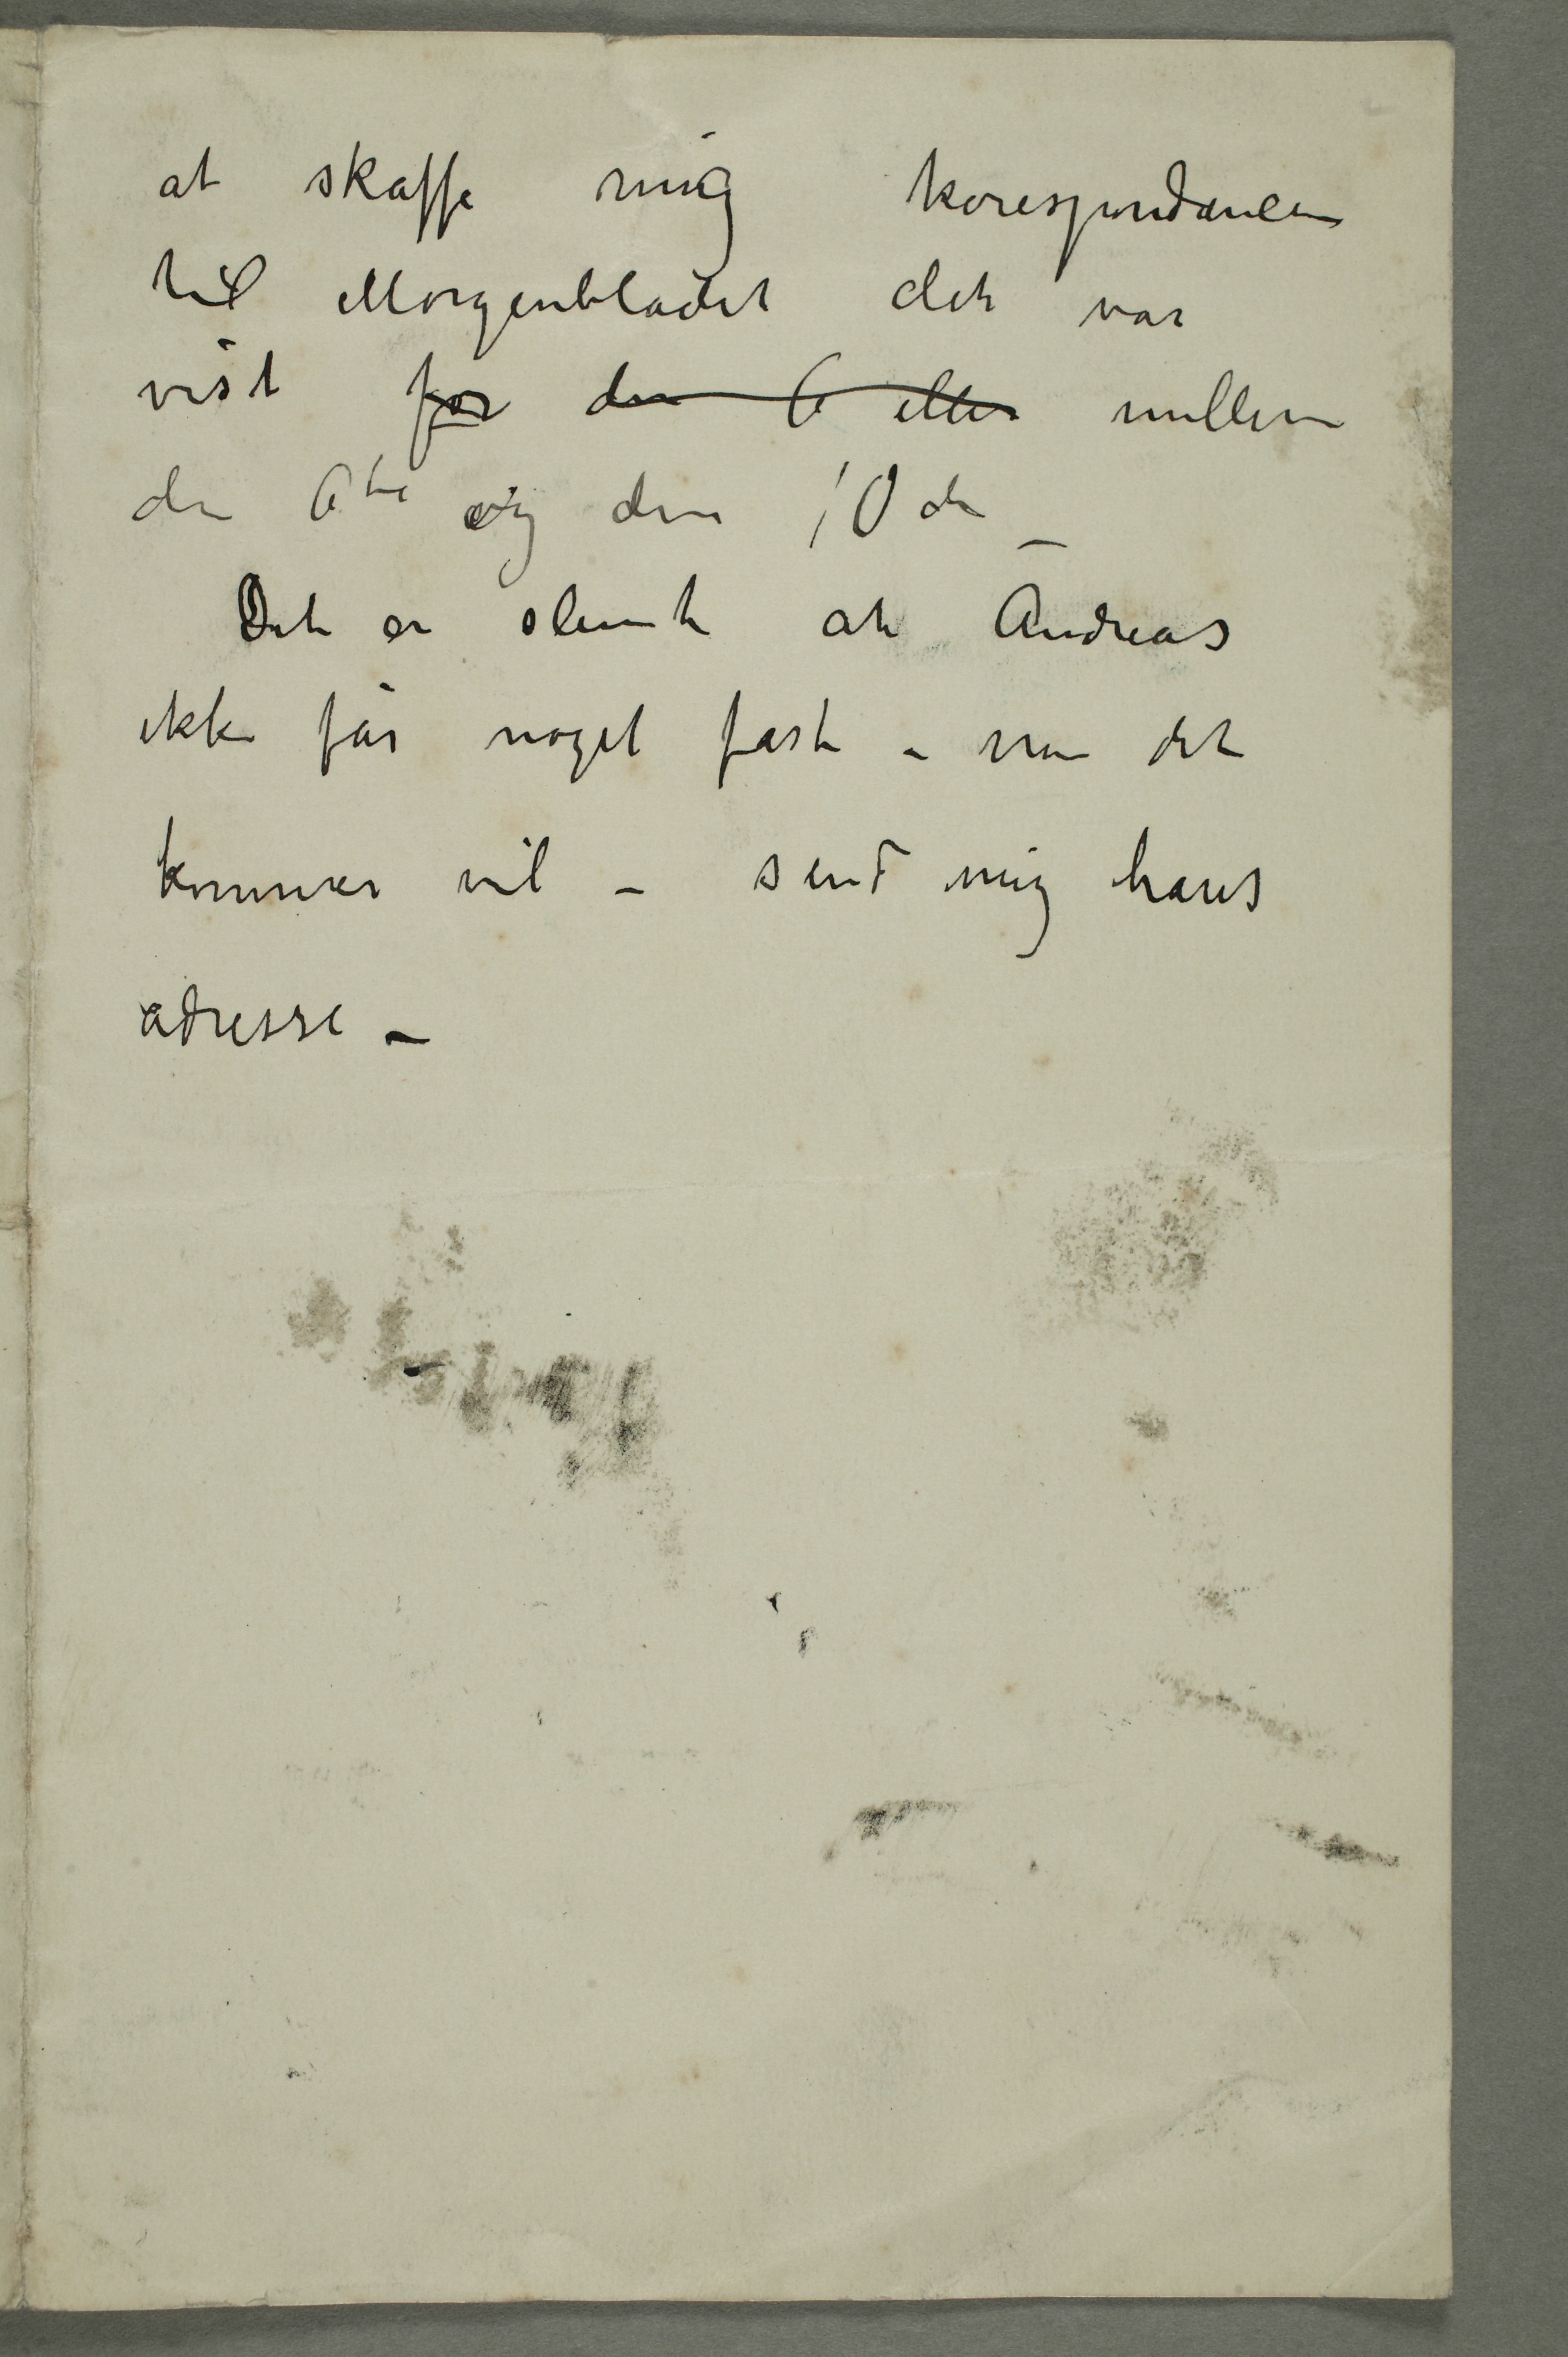 at skaffe mig korespondancen
til Morgenbladet det var
vist for den 6 eller mellem
den 6te og den 10de –
Det er slemt at Andreas
ikke får noget fast – men det
kommer vel – send mig hans
adresse –